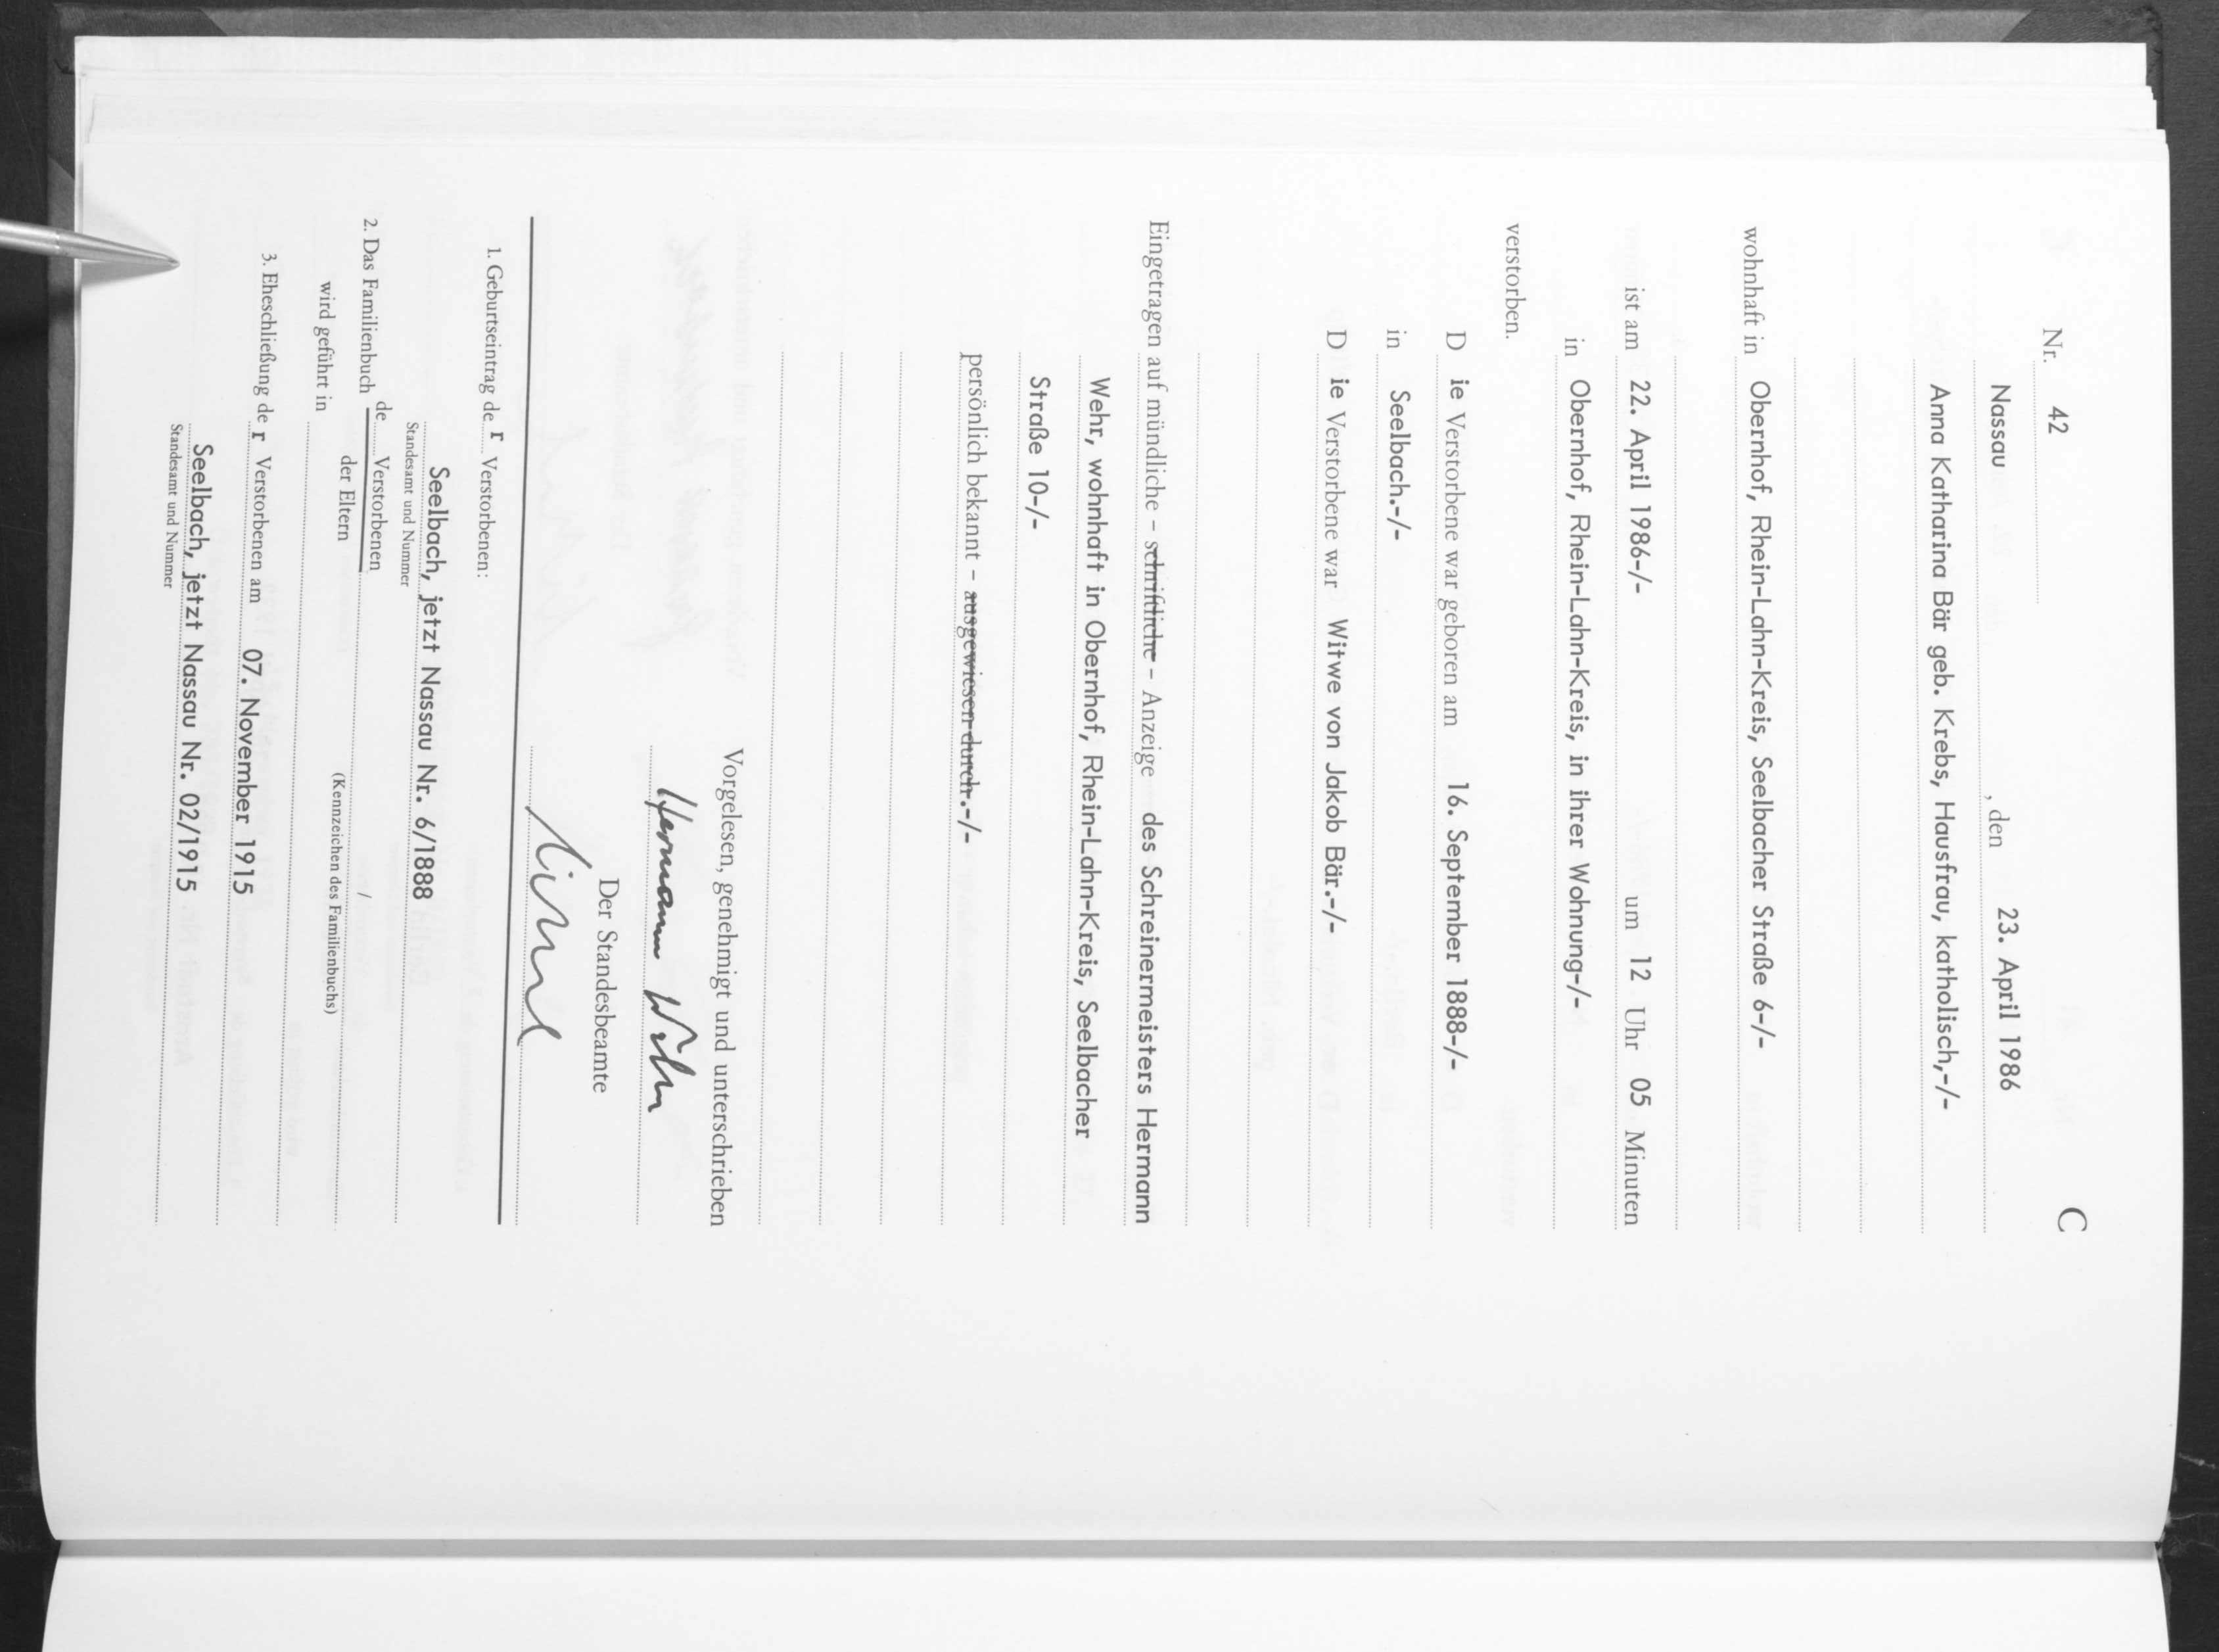 Nr. 42 C
Nassau , den 23. April 1986
Anna Katharina Bär geb. Krebs, Hausfrau, katholisch,-/-
wohnhaft in Obernhof, Rhein-Lahn-Kreis, Seelbacher Straße 6-/-
ist am 22. April 1986-/- um 12 Uhr 05 Minuten
in Obernhof, Rhein-Lahn-Kreis, in ihrer Wohnung-/-
verstorben.
D ie Verstorbene war geboren am 16. September 1888-/-
in Seelbach.-/-
D ie Verstorbene war Witwe von Jakob Bär.-/-
Eingetragen auf mündliche - schriftliche - Anzeige des Schreinermeisters Hermann
Wehr, wohnhaft in Obernhof, Rhein-Lahn-Kreis, Seelbacher
Straße 10-/-
persönlich bekannt - ausgewiesen durch.-/-
Vorgelesen, genehmigt und unterschrieben
Hermann Wehr
Der Standesbeamte
1. Geburtseintrag de r Verstorbenen:
Seelbach, jetzt Nassau Nr. 6/1888
Standesamt und Nummer
de Verstorbenen
2. Das Familienbuch /
der Eltern
wird geführt in (Kennzeichen des Familienbuchs)
3. Eheschließung de r Verstorbenen am 07. November 1915
Seelbach, jetzt Nassau Nr. 02/1915
Standesamt und Nummer